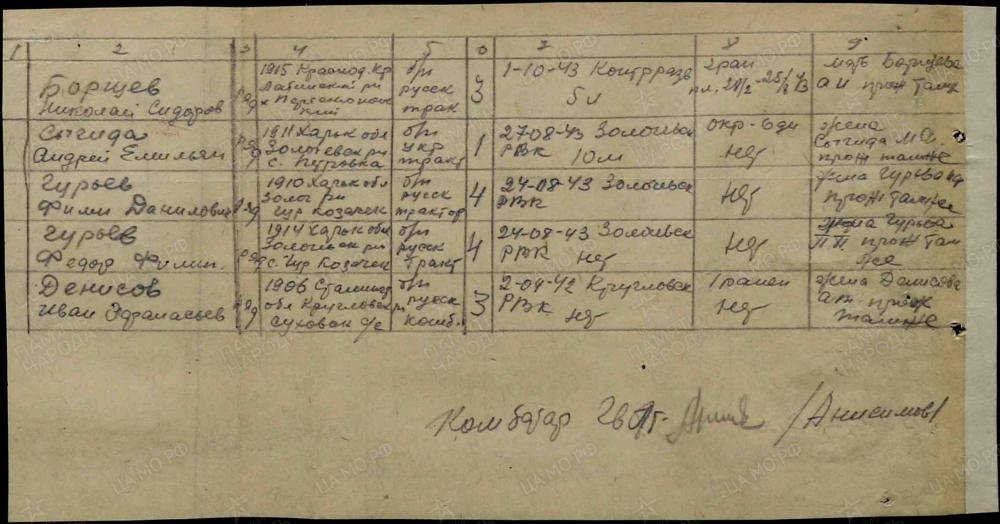 1 2 3 4 5 6 7 8 9
Борщев
Николай Сидоров
ряд
1915 Краснод. Кр
Лабинский р-н
х Партизанск
кий
б/п
русск
трак
3
1-10-43 Контрразв
5 л
2 ран
пл.
мать Борщева
А И прож там ж
Сыгида
Андрей Емильян
ряд
1911 Харьк обл
Золочевск р-н
с. Петровка
б/п
укр
тракт
1
27-08-43 Золочевск
РВК 10 м
окр-6 дн
нет
жена
Сыгида М
прож там же
Гурьев
Фили Данилович
ряд
1910 Харьк обл
Золоч р-н
Гур Козачек
б/п
русск
трактор
4
24-08-43 Золочевск
РВК
нет
жена Гурьева
прож там же
Гурьев
Федор Филип.
ряд
1914 Харьк обл
Золочевск р-н
с. Гур Козачек
б/п
русск
тракт
4
24-08-43 Золочевск
РВК нет
нет
жена Гурьева
П П прож там
же
Денисов
Иван Афанасьев
ряд
1906 Сталингр
обл Кругловск р-н
Суховск с/с
б/п
русск
комб.
3
2-04-42 Кругловск
РВК нет
1 ранен
нет
жена Денисова
прож
там же
Комбатар Гв /Анисимов/
ЦАМО.РФ
НАРОДА